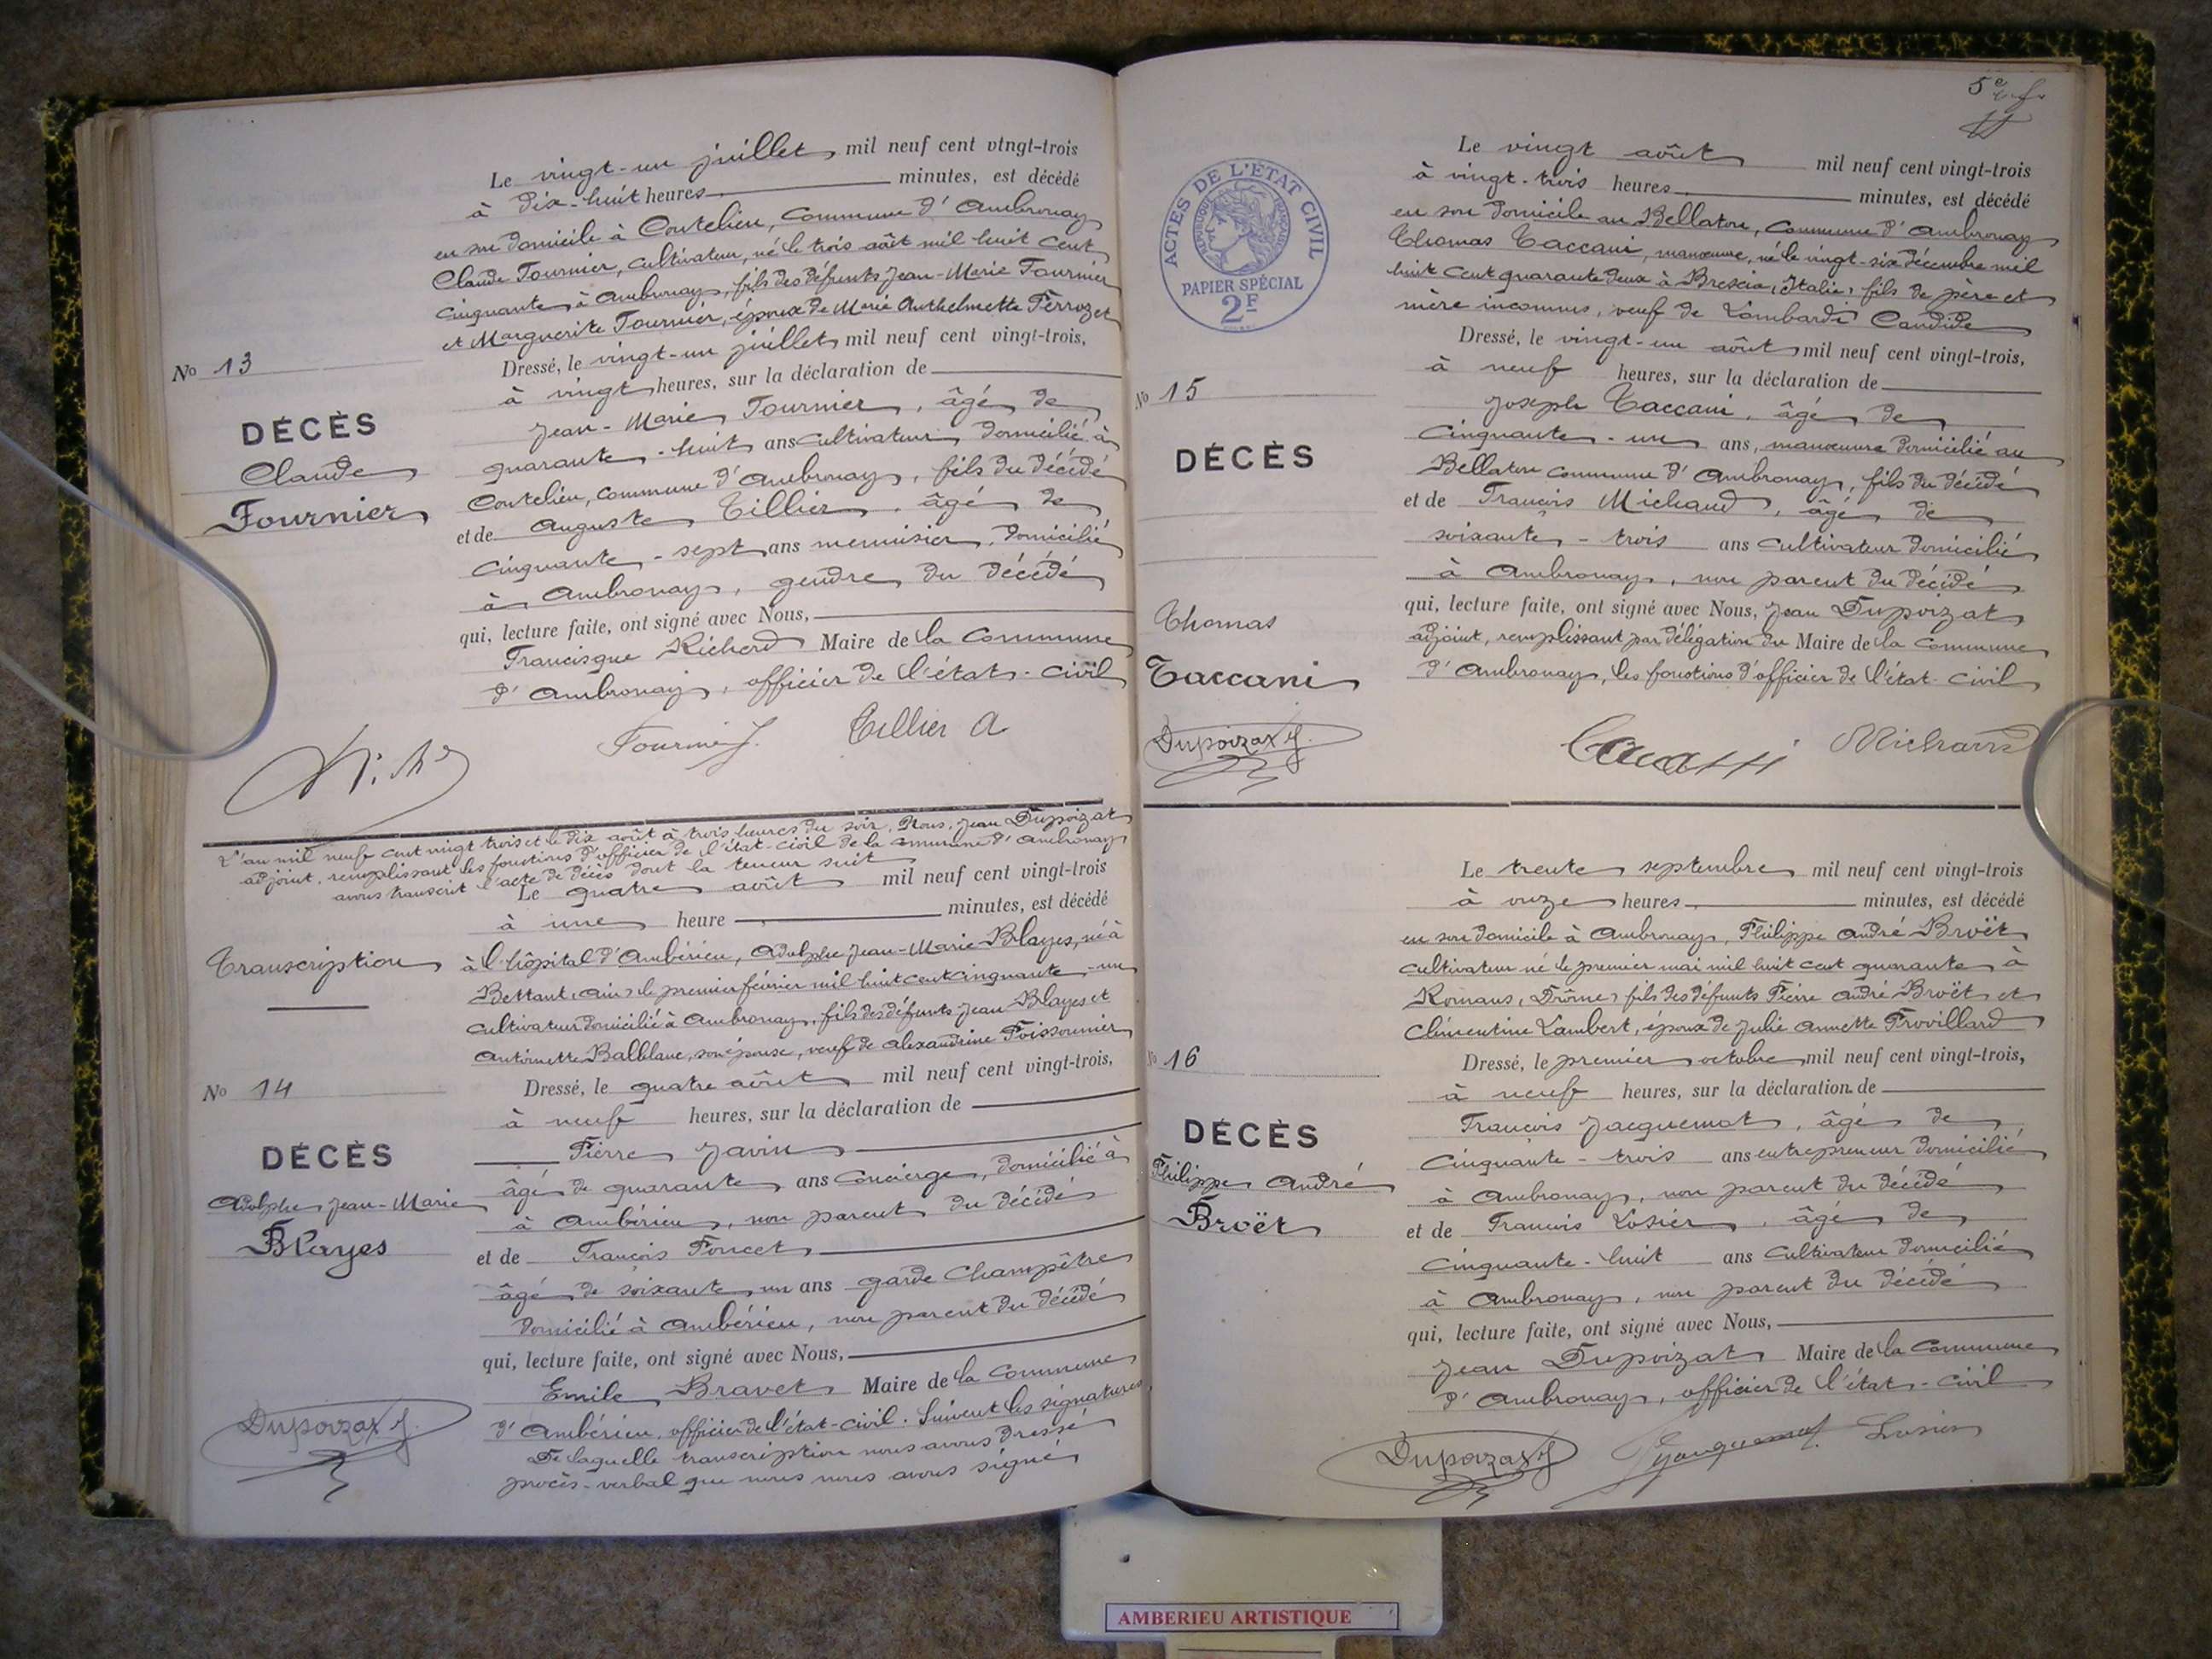 Le vingt-un juillet mil neuf cent vingt-trois
à dix-huit heures minutes, est décédé
en son domicile à Coutelieu, commune d'Ambronay
Claude Fournier, cultivateur, né le trois août mil huit cent
cinquante à Ambronay, fils des défunts Jean-Marie Fournier
et Marguerite Fournier, époux de Marie Anthelmette Ferrozet
Dressé, le vingt-un juillet mil neuf cent vingt-trois,
à vingt heures, sur la déclaration de
Jean-Marie Fournier, âgé de
quarante-huit ans cultivateur, domicilié à
Coutelieu, commune d'Ambronay, fils du décédé
et de Auguste Tillier, âgé de
cinquante-sept ans menuisier, domicilié
à Ambronay, gendre du décédé
qui, lecture faite, ont signé avec Nous,
Francisque Richerd Maire de la commune
d'Ambronay, officier de l'état-civil
No 13
DÉCÈS
Claude
Fournier
Fournier J. Tillier A
L'an mil neuf cent vingt trois et le dix août à trois heures du soir, Nous, Jean Dupoizat
adjoint, remplissant les fonctions d'officier de l'état-civil de la commune d'Ambronay
avons transcrit l'acte de décès dont la teneur suit
Le quatre août mil neuf cent vingt-trois
à une heure minutes, est décédé
à l'hôpital d'Ambérieu, Adolphe Jean-Marie Blayes, né à
Bettant (Ain) le premier février mil huit cent cinquante-un
cultivateur domicilié à Ambronay, fils des défunts Jean Blayes et
Antoinette Balblanc, son épouse, veuf de Alexandrine Poissonnier
Dressé, le quatre août mil neuf cent vingt-trois,
à neuf heures, sur la déclaration de
Pierre Javin
âgé de quarante ans concierge, domicilié à
à Ambérieu, non parent du décédé
et de François Poncet
âgé de soixante un ans garde champêtre
domicilié à Ambérieu, non parent du décédé
qui, lecture faite, ont signé avec Nous,
Emile Bravet Maire de la commune
d'Ambérieu, officier de l'état-civil. Suivent les signatures
De laquelle transcription nous avons dressé
procès-verbal que nous nous avons signé
Transcription
No 14
DÉCÈS
Adolphe Jean-Marie
Blayes
Dupoizat J.
5e
ACTES DE L'ETAT CIVIL
REPUBLIQUE FRANÇAISE
PAPIER SPÉCIAL
2F
Le vingt août mil neuf cent vingt-trois
à vingt-trois heures minutes, est décédé
en son domicile au Bellaton, commune d'Ambronay
Thomas Taccani, manœuvre, né le vingt-six décembre mil
huit cent quarante deux à Brescia (Italie) fils de père et
mère inconnus, veuf de Lombardi Candide
Dressé, le vingt-un août mil neuf cent vingt-trois,
à neuf heures, sur la déclaration de
Joseph Taccani, âgé de
cinquante-un ans, manœuvre domicilié au
Bellaton commune d'Ambronay, fils du décédé
et de François Michaud, âgé de
soixante-trois ans cultivateur domicilié
à Ambronay, non parent du décédé
qui, lecture faite, ont signé avec Nous, Jean Dupoizat
adjoint, remplissant par délégation du Maire de la commune
d'Ambronay, les fonctions d'officier de l'état-civil
No 15
DÉCÈS
Thomas
Taccani
Dupoizat J. Michaud
Le trente septembre mil neuf cent vingt-trois
à onze heures minutes, est décédé
en son domicile à Ambronay, Philippe André Broët
cultivateur né le premier mai mil huit cent quarante à
Romans (Drôme) fils des défunts Pierre André Broët et
Clémentine Lambert, époux de Julie Annette Provillard
Dressé, le premier octobre mil neuf cent vingt-trois,
à neuf heures, sur la déclaration de
François Jacquemot, âgé de
cinquante-trois ans entrepreneur domicilié
à Ambronay, non parent du décédé
et de François Losier, âgé de
cinquante-huit ans cultivateur domicilié
à Ambronay, non parent du décédé
qui, lecture faite, ont signé avec Nous,
Jean Dupoizat Maire de la commune
d'Ambronay, officier de l'état-civil
No 16
DÉCÈS
Philippe André
Broët
Dupoizat J Jacquemot Losier
AMBERIEU ARTISTIQUE